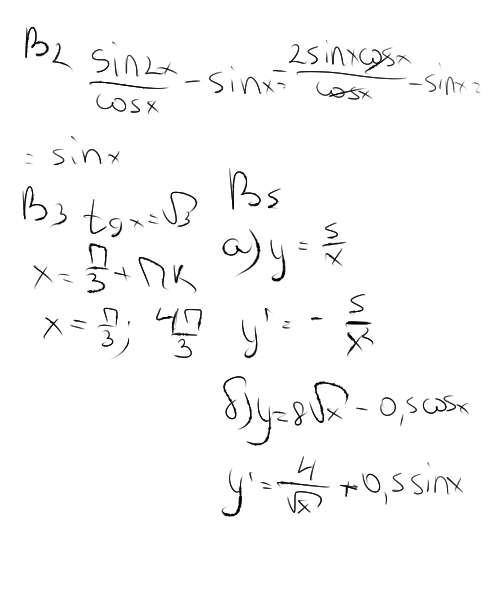 B2 sin2x/cosx - sinx = 2sinxcosx/cosx - sinx =
= sinx
B3 tgx = √3
x = π/3 + πk
x = π/3; 4π/3
B5
а) y = 5/x
y' = - 5/x²
б) y = 8√x - 0,5cosx
y' = 4/√x + 0,5sinx